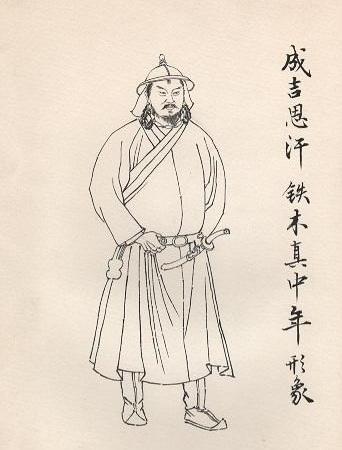 成吉思汗 铁木真中年 形象